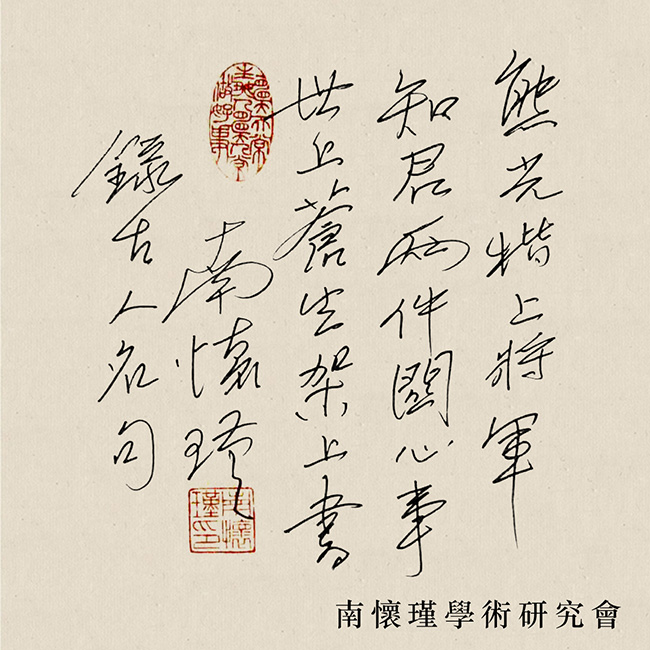 熊光楷上將軍
知君兩件關心事
世上蒼生架上書
南懷瑾
南懷瑾印
錄古人名句
南懷瑾學術研究會